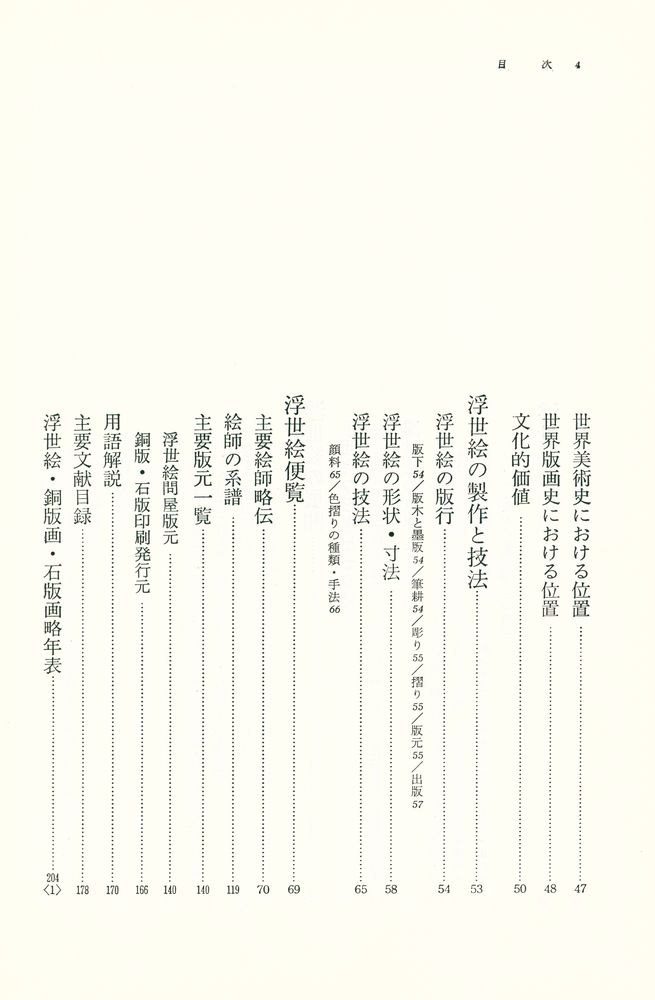 目 次 4
世界美術史における位置……47
世界版画史における位置……48
文化的価値……50
浮世絵の製作と技法……53
浮世絵の版行……54
版下54／版木と墨版54／筆耕54／彫り55／摺り55／版元55／出版57
浮世絵の形状・寸法……58
浮世絵の技法……65
顔料65／色摺りの種類・手法66
浮世絵便覧……69
主要絵師略伝……70
絵師の系譜……119
主要版元一覧……140
浮世絵問屋版元……140
銅版・石版印刷発行元……166
用語解説……170
主要文献目録……178
浮世絵・銅版画・石版画略年表……204〈1〉